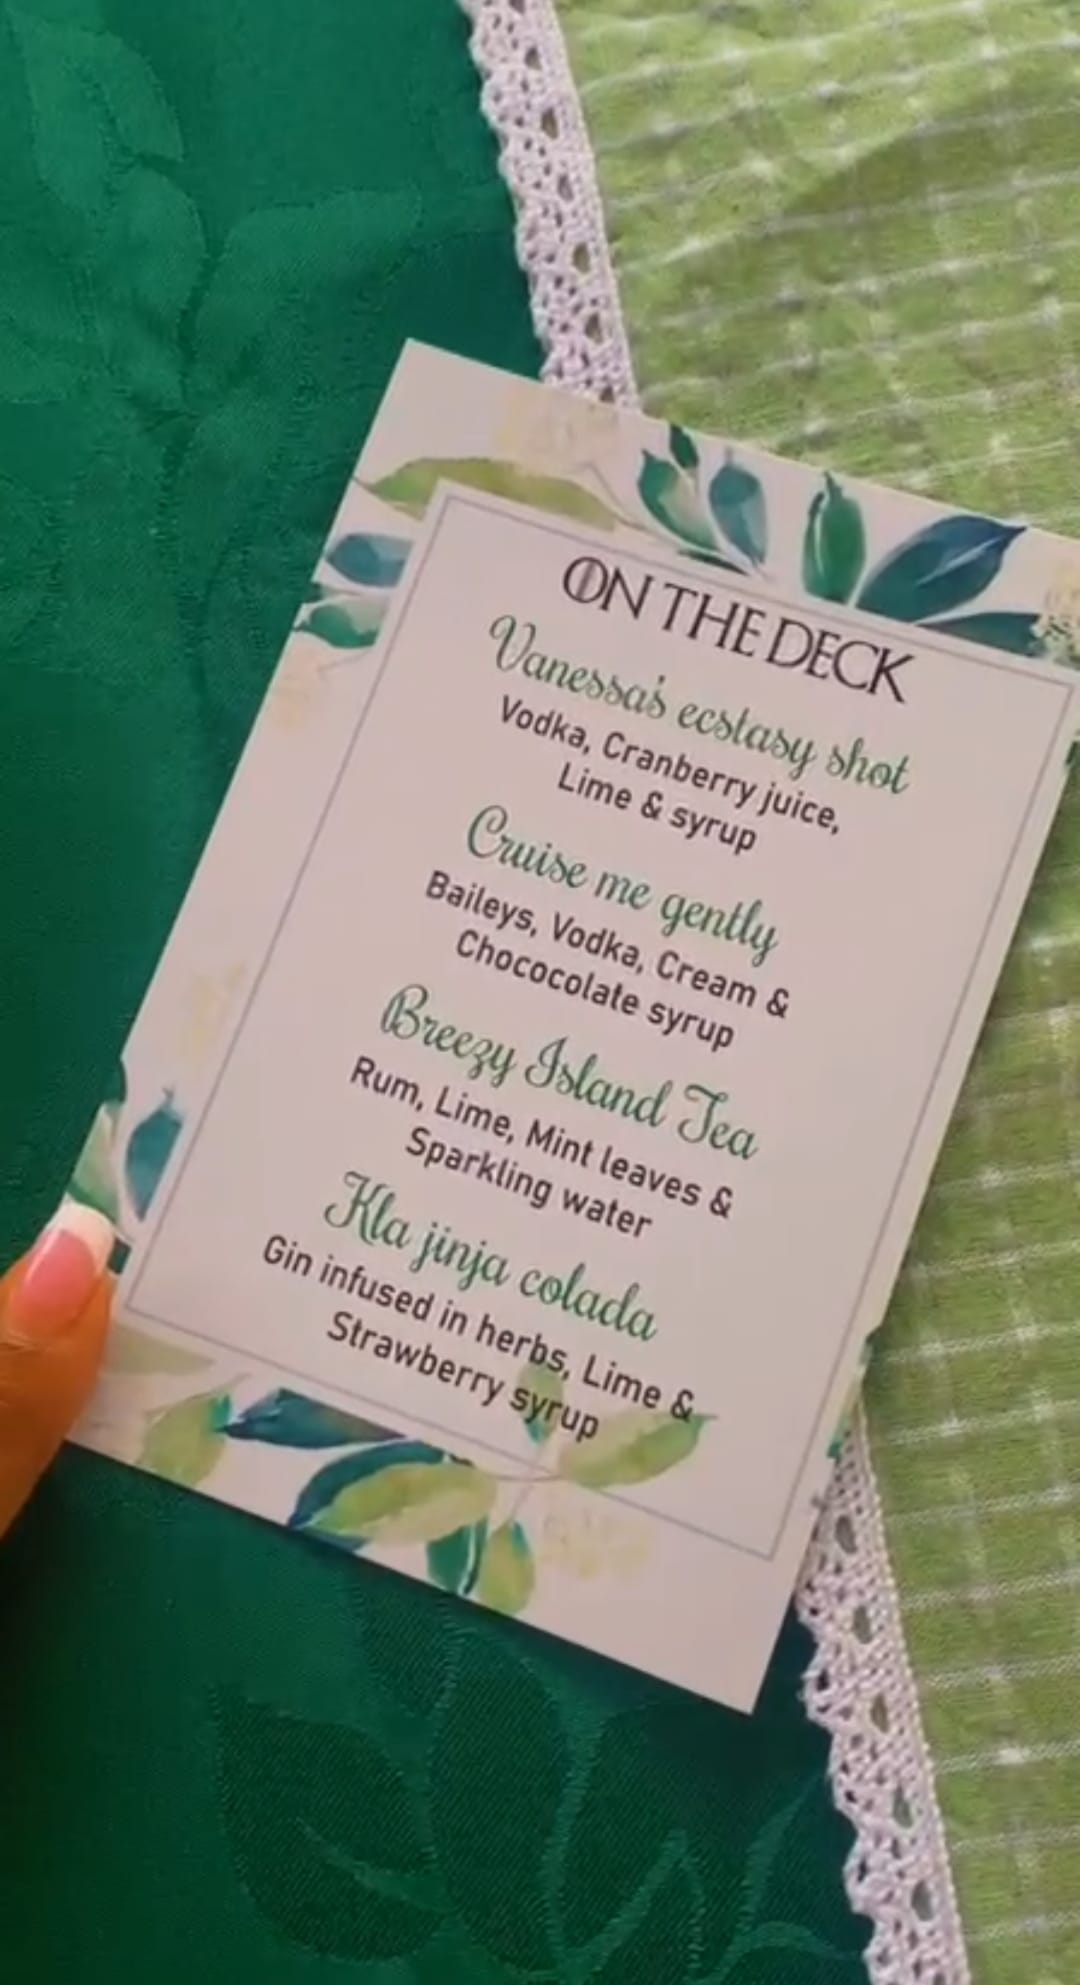 ON THE DECK
Vanessa's ecstasy shot
Vodka, Cranberry juice,
Lime & syrup
Cruise me gently
Baileys, Vodka, Cream &
Chococolate syrup
Breezy Island Tea
Rum, Lime, Mint leaves &
Sparkling water
Kla jinja colada
Gin infused in herbs, Lime &
Strawberry syrup